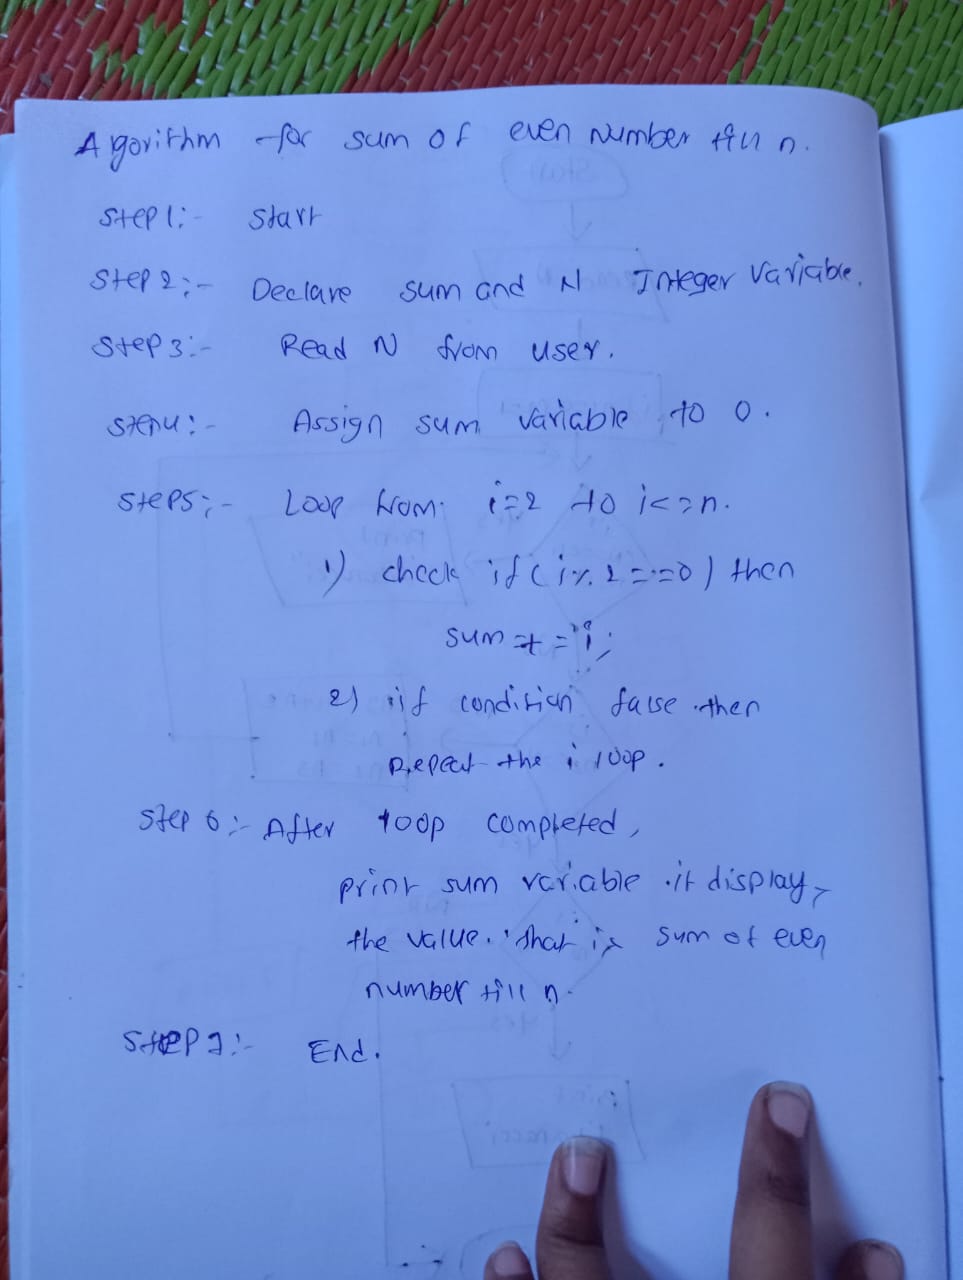 Algorithm for sum of even number till n.
Step 1:- Start
Step 2:- Declare sum and N Integer Variable.
Step 3:- Read N from user.
Step 4:- Assign sum variable to 0.
Step 5:- Loop from i=2 to i<=n.
1) check if (i%2==0) then
sum += i;
2) if condition false then
Repeat the i loop.
Step 6:- After loop completed,
print sum variable it display
the value. that is sum of even
number till n.
Step 7:- End.